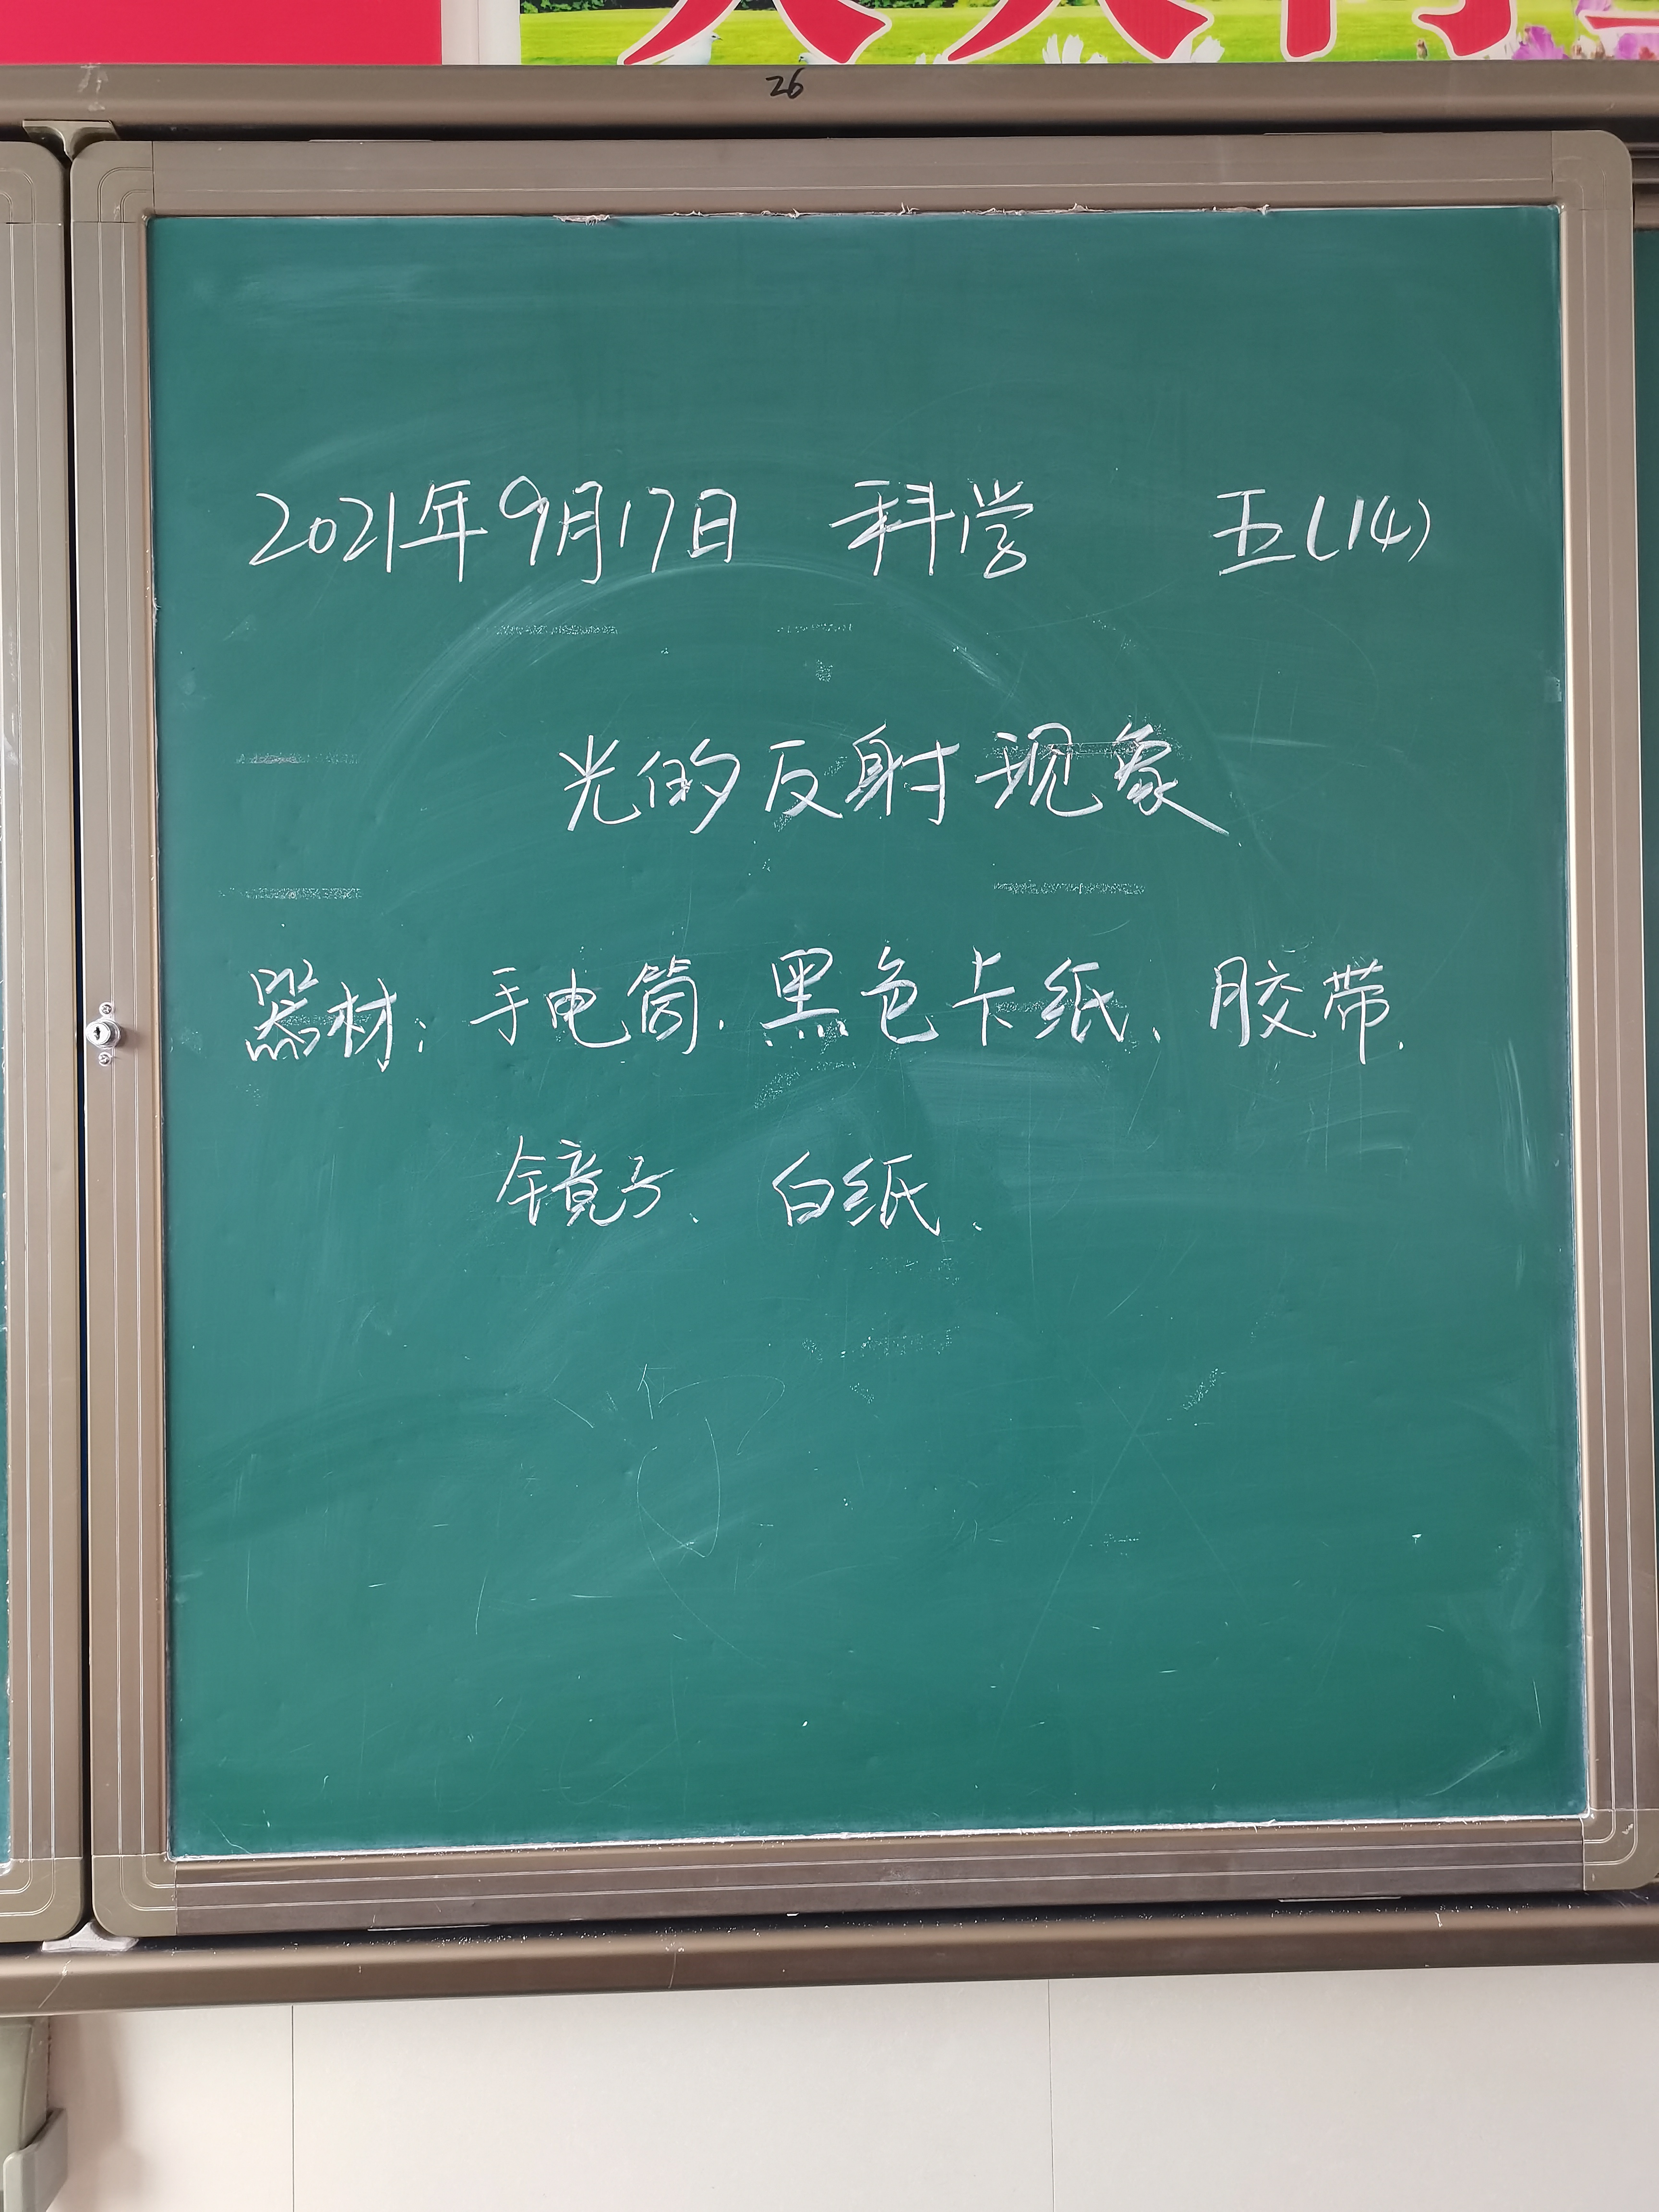 26
2021年9月17日 科学 五(14)
光的反射现象
器材：手电筒、黑色卡纸、胶带、
镜子、白纸、